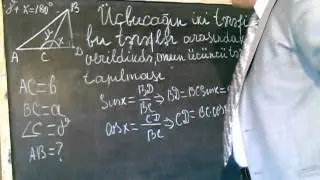 γ + x = 180°
Üçbucağın iki tərəfi
bu tərəflər arasındakı
verildikdə, onun üçüncü tə
tapılması
B
A
C
D
x
AC = b
BC = a
∠C = γ
AB = ?
Sinx = BD/BC ⇒ BD = BCSinx =
cosx = CD/BC ⇒ CD = BC·cos